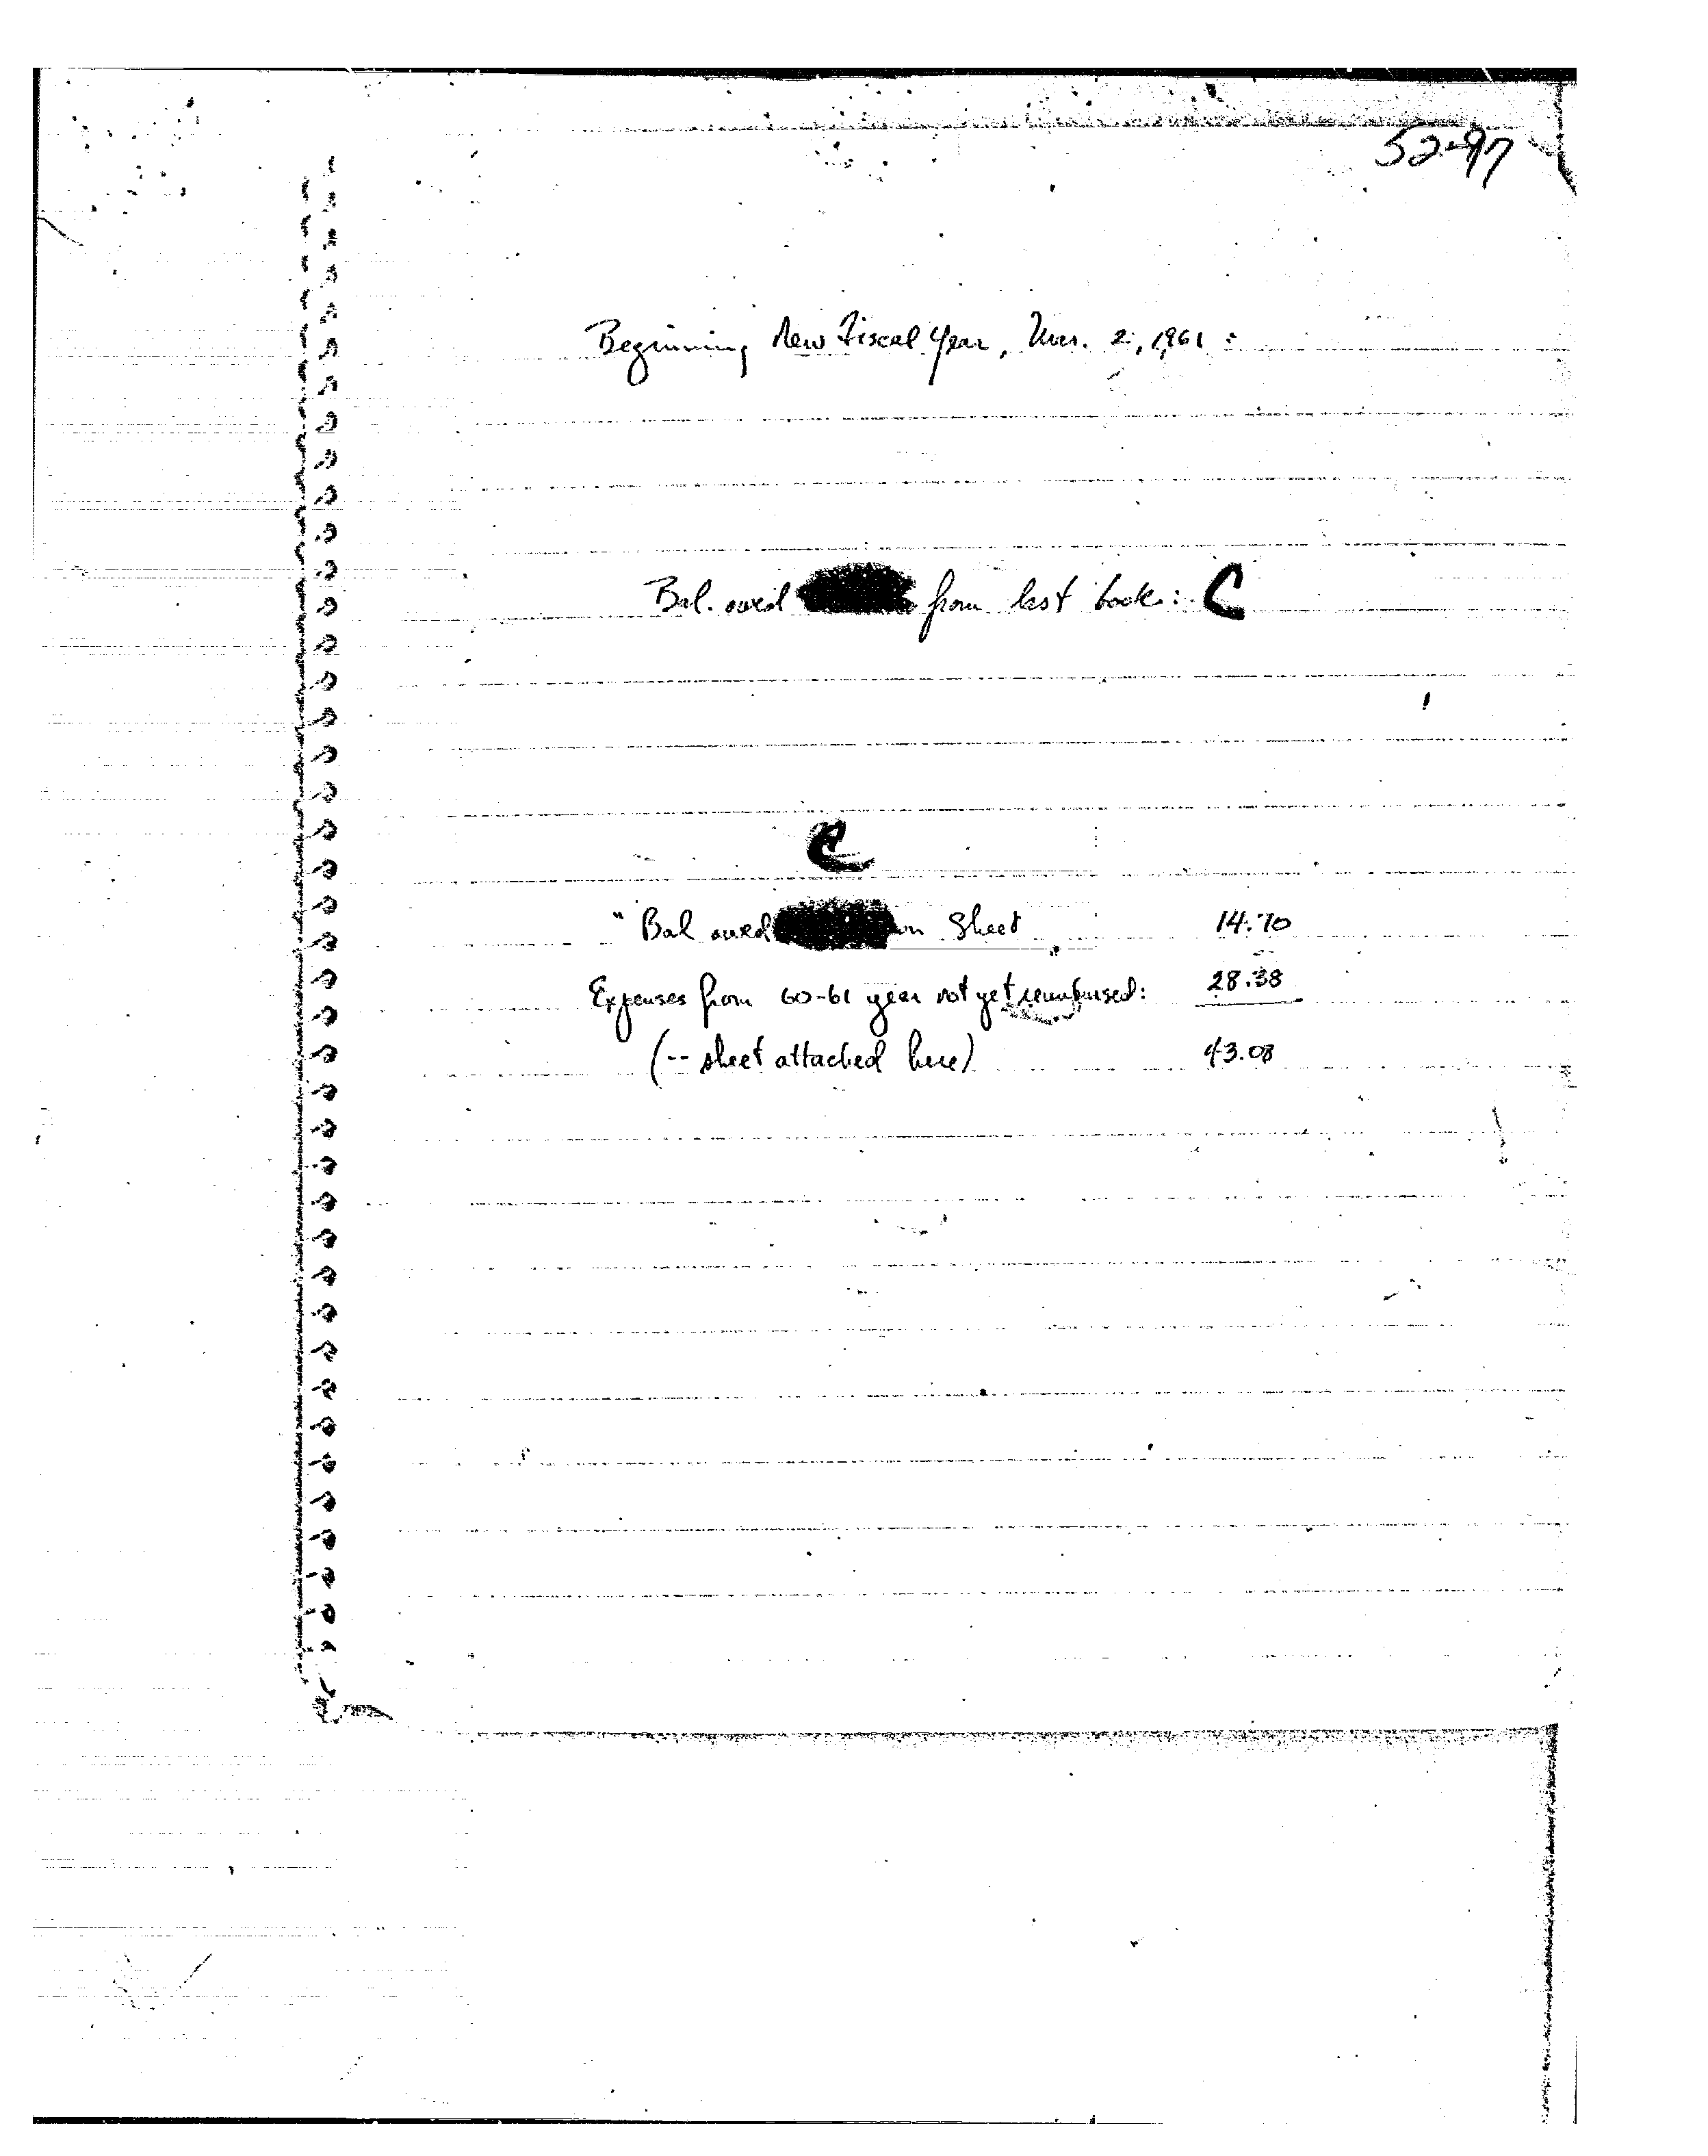 52-97
Beginning New Fiscal Year, Mar. 2, 1961 :
Bal. owed from last book: C
C
" Bal owed on Sheet 14.70
Expenses from 60-61 year not yet reimbursed: 28.38
(-- sheet attached here) 43.08